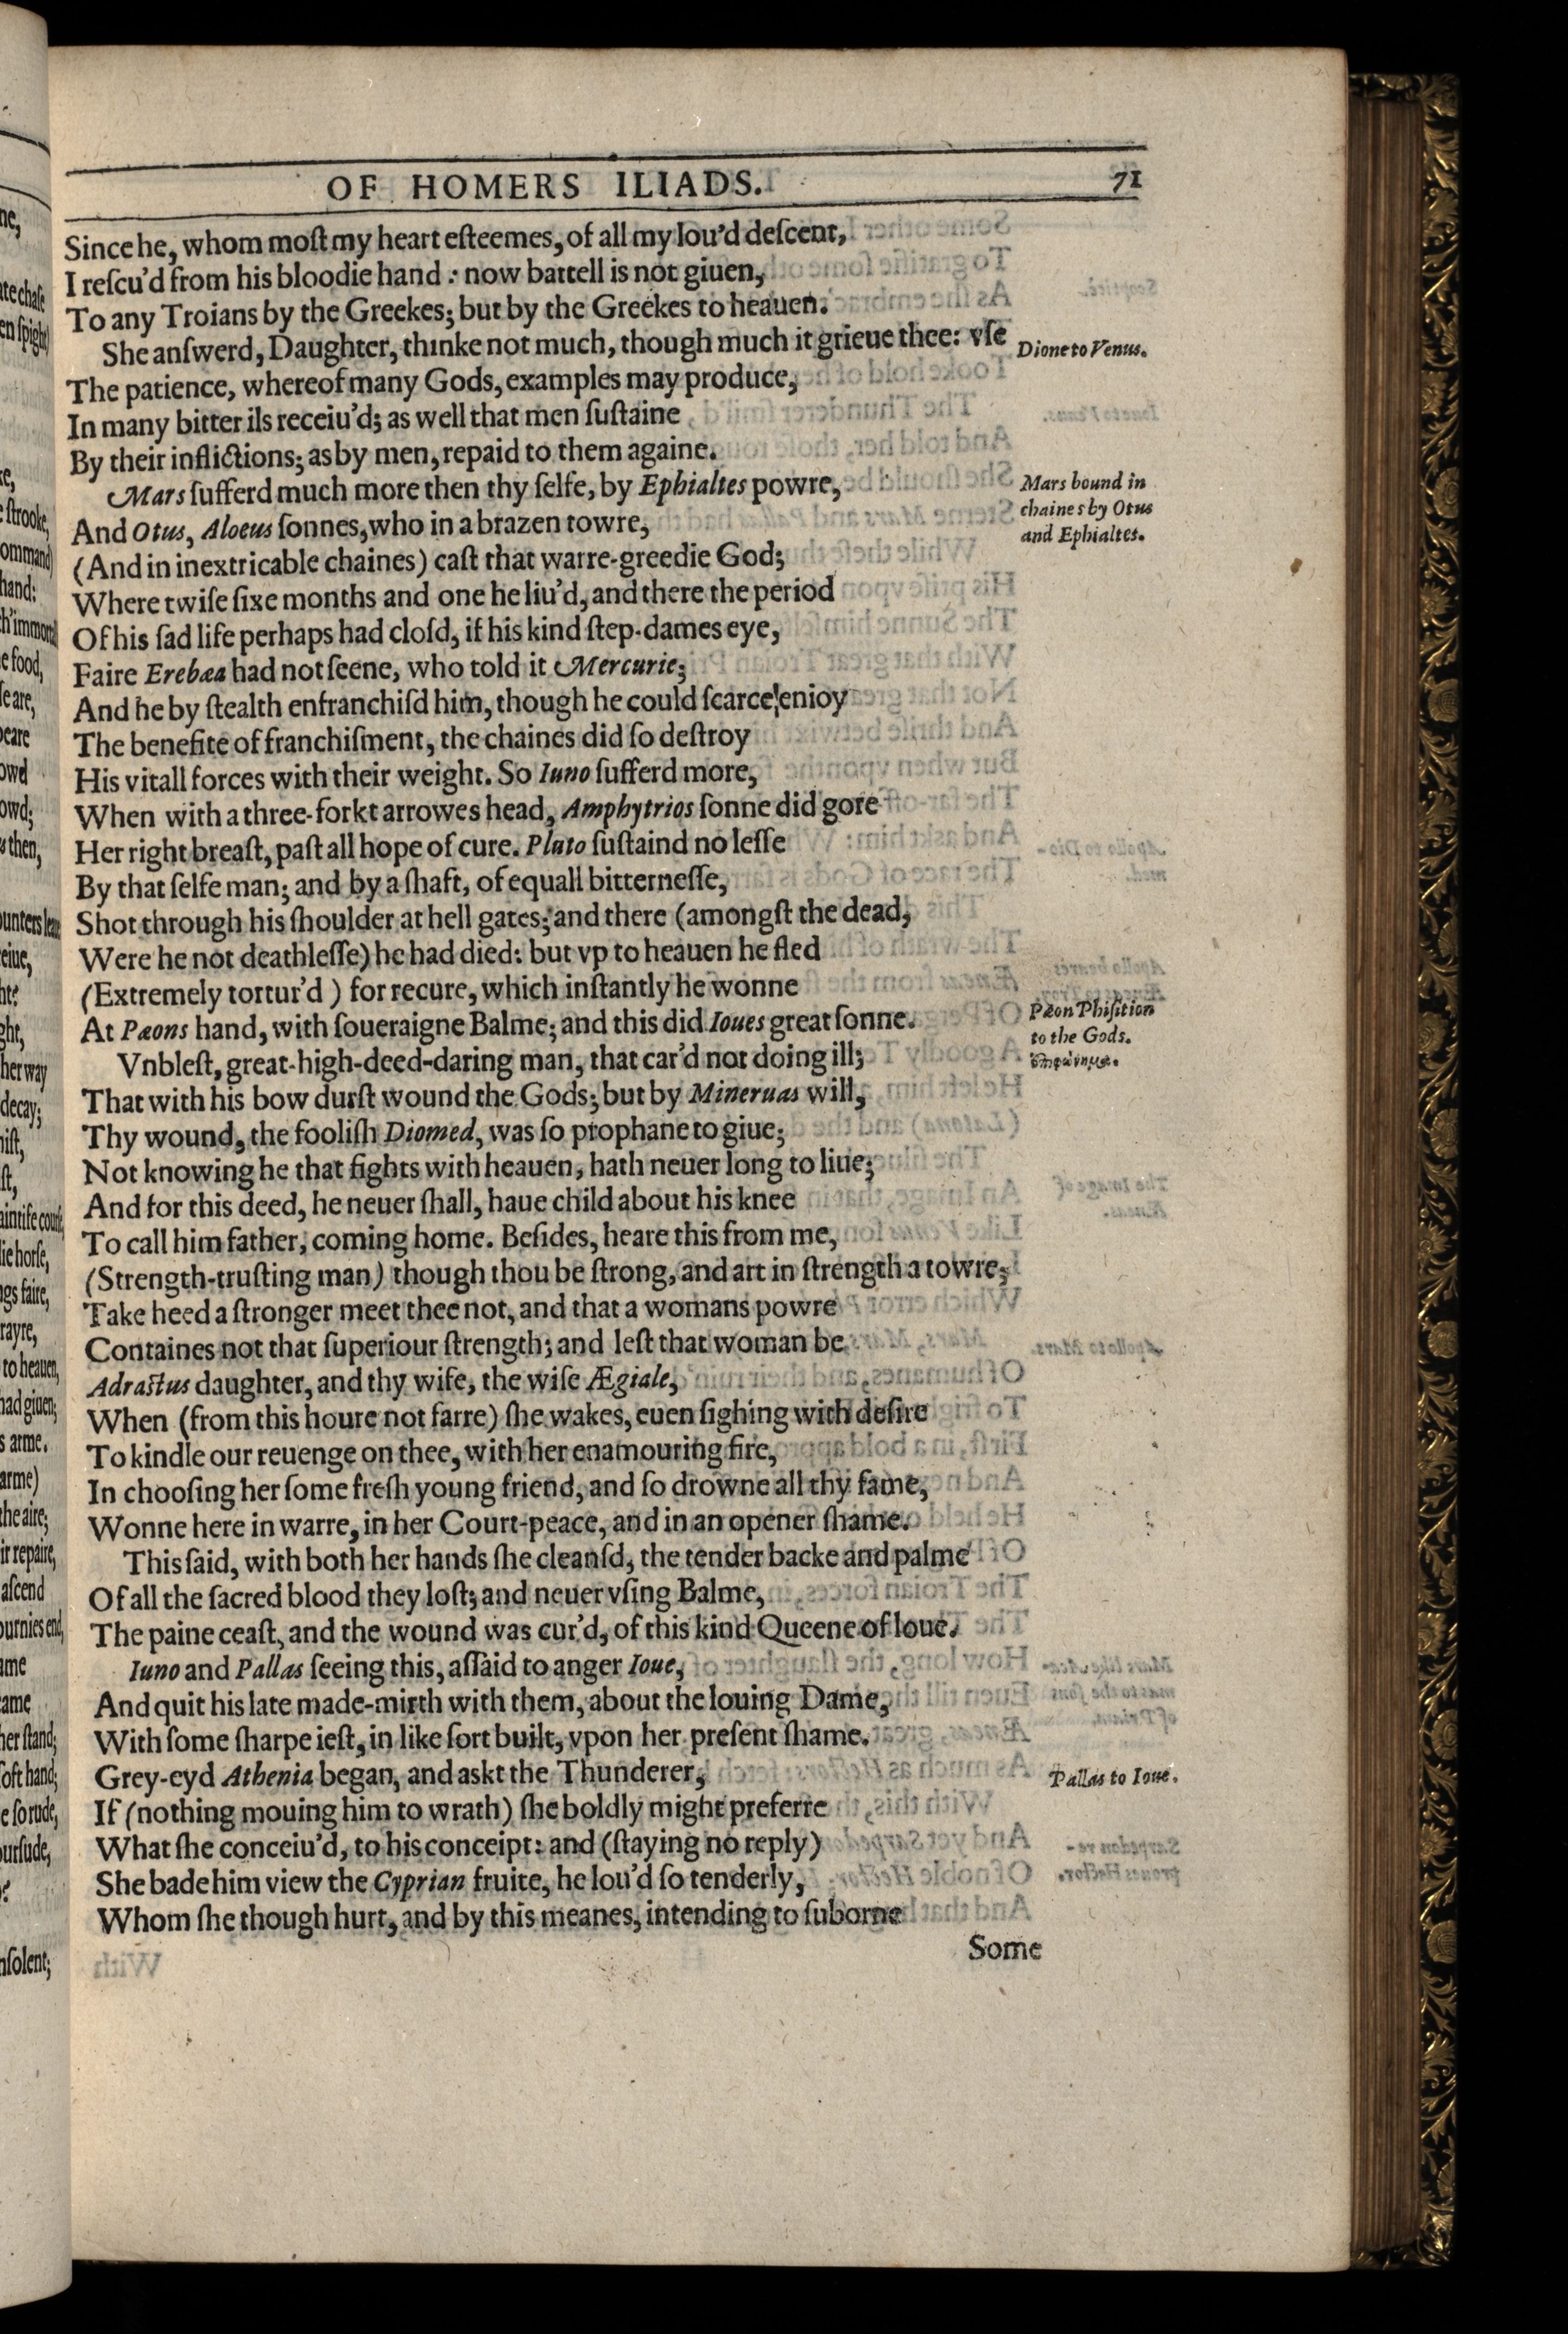 OF HOMERS ILIADS. 71
Since he, whom moſt my heart eſteemes, of all my lou'd deſcent,
I reſcu'd from his bloodie hand: now battell is not giuen,
To any Troians by the Greekes; but by the Greekes to heauen.
She anſwerd, Daughter, thinke not much, though much it grieue thee: vſe
Dione to Venus.
The patience, whereof many Gods, examples may produce,
In many bitter ils receiu'd; as well that men ſuſtaine
By their inflictions; as by men, repaid to them againe.
Mars ſufferd much more then thy ſelfe, by Ephialtes powre,
Mars bound in
chaines by Otus
and Ephialtes.
And Otus, Aloeus ſonnes, who in a brazen towre,
(And in inextricable chaines) caſt that warre-greedie God;
Where twiſe ſixe months and one he liu'd, and there the period
Of his ſad life perhaps had cloſd, if his kind ſtep-dames eye,
Faire Erebæa had not ſeene, who told it Mercurie;
And he by ſtealth enfranchiſd him, though he could ſcarce enioy
The benefite of franchiſment, the chaines did ſo deſtroy
His vitall forces with their weight. So Iuno ſufferd more,
When with a three-forkt arrowes head, Amphytrios ſonne did gore
Her right breaſt, paſt all hope of cure. Pluto ſuſtaind no leſſe
By that ſelfe man; and by a ſhaft, of equall bitterneſſe,
Shot through his ſhoulder at hell gates; and there (amongſt the dead,
Were he not deathleſſe) he had died: but vp to heauen he fled
(Extremely tortur'd) for recure, which inſtantly he wonne
At Pæons hand, with ſoueraigne Balme; and this did Ioues great ſonne.
Pæon Phiſition
to the Gods.
Vnbleſt, great-high-deed-daring man, that car'd not doing ill;
That with his bow durſt wound the Gods; but by Mineruas will,
Thy wound, the fooliſh Diomed, was ſo prophane to giue;
Not knowing he that fights with heauen, hath neuer long to liue;
And for this deed, he neuer ſhall, haue child about his knee
To call him father, coming home. Beſides, heare this from me,
(Strength-truſting man) though thou be ſtrong, and art in ſtrength a towre,
Take heed a ſtronger meet thee not, and that a womans powre
Containes not that ſuperiour ſtrength; and leſt that woman be
Adraſtus daughter, and thy wife, the wiſe Ægiale,
When (from this houre not farre) ſhe wakes, euen ſighing with deſire
To kindle our reuenge on thee, with her enamouring fire,
In chooſing her ſome freſh young friend, and ſo drowne all thy fame,
Wonne here in warre, in her Court-peace, and in an opener ſhame.
This ſaid, with both her hands ſhe cleanſd, the tender backe and palme
Of all the ſacred blood they loſt; and neuer vſing Balme,
The paine ceaſt, and the wound was cur'd, of this kind Queene of loue.
Iuno and Pallas ſeeing this, aſſaid to anger Ioue,
And quit his late made-mirth with them, about the louing Dame,
With ſome ſharpe ieſt, in like ſort built, vpon her preſent ſhame.
Grey-eyd Athenia began, and askt the Thunderer,
Pallas to Ioue.
If (nothing mouing him to wrath) ſhe boldly might preferre
What ſhe conceiu'd, to his conceipt: and (ſtaying no reply)
She bade him view the Cyprian fruite, he lou'd ſo tenderly,
Whom ſhe though hurt, and by this meanes, intending to ſuborne
Some